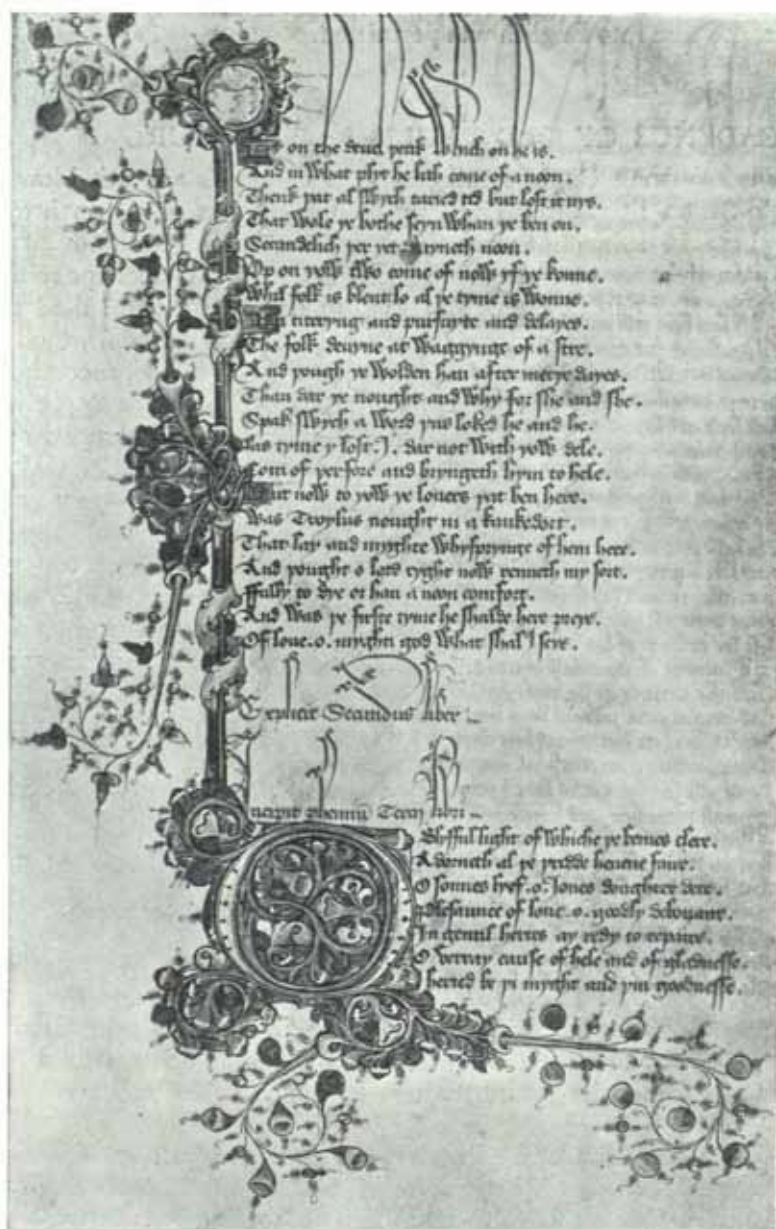 on the which on he is.
And in What plyt he lith come of a noon.
Thenk þat al swych taried tid but lost it nys.
That wole ye bothe seyn Whan ye ben on.
Secundelich þer yet dyuyneth noon.
Vp on yow two come of now yf ye konne.
Whil folk is blent lo al þe tyme is wonne.
In titeryng and pursuyte and delayes.
The folk deuyne at waggynge of a stre.
And þough ye wolden han after merye dayes.
Than dar ye nought and why for she and she.
Spak swych a word þus loked he and he.
las tyme y lost .I. dar not with yow dele.
Com of þerfore and bryngeth hym to hele.
But now to yow ye louers þat ben here.
was Troylus nought in a kankedort.
That lay and myghte whysprynge of hem here.
And þought o lord ryght now renneth my sort.
ffully to dye or han a noon comfort.
And was þe firste tyme he shulde here preye.
Of loue .o. myghti god what shal I seye.
Explicit Secundus liber
Incipit Tercij libri
O Blysful light of whiche þe bemes clere.
Adorneth al þe þridde heuene faire.
O sonnes leef .o. Ioues doughter dere.
Plesaunce of loue .o. goodly debonaire.
In gentil hertes ay redy to repaire.
O verray cause of hele and of gladnesse.
I heried be þi myght and þin goodnesse.